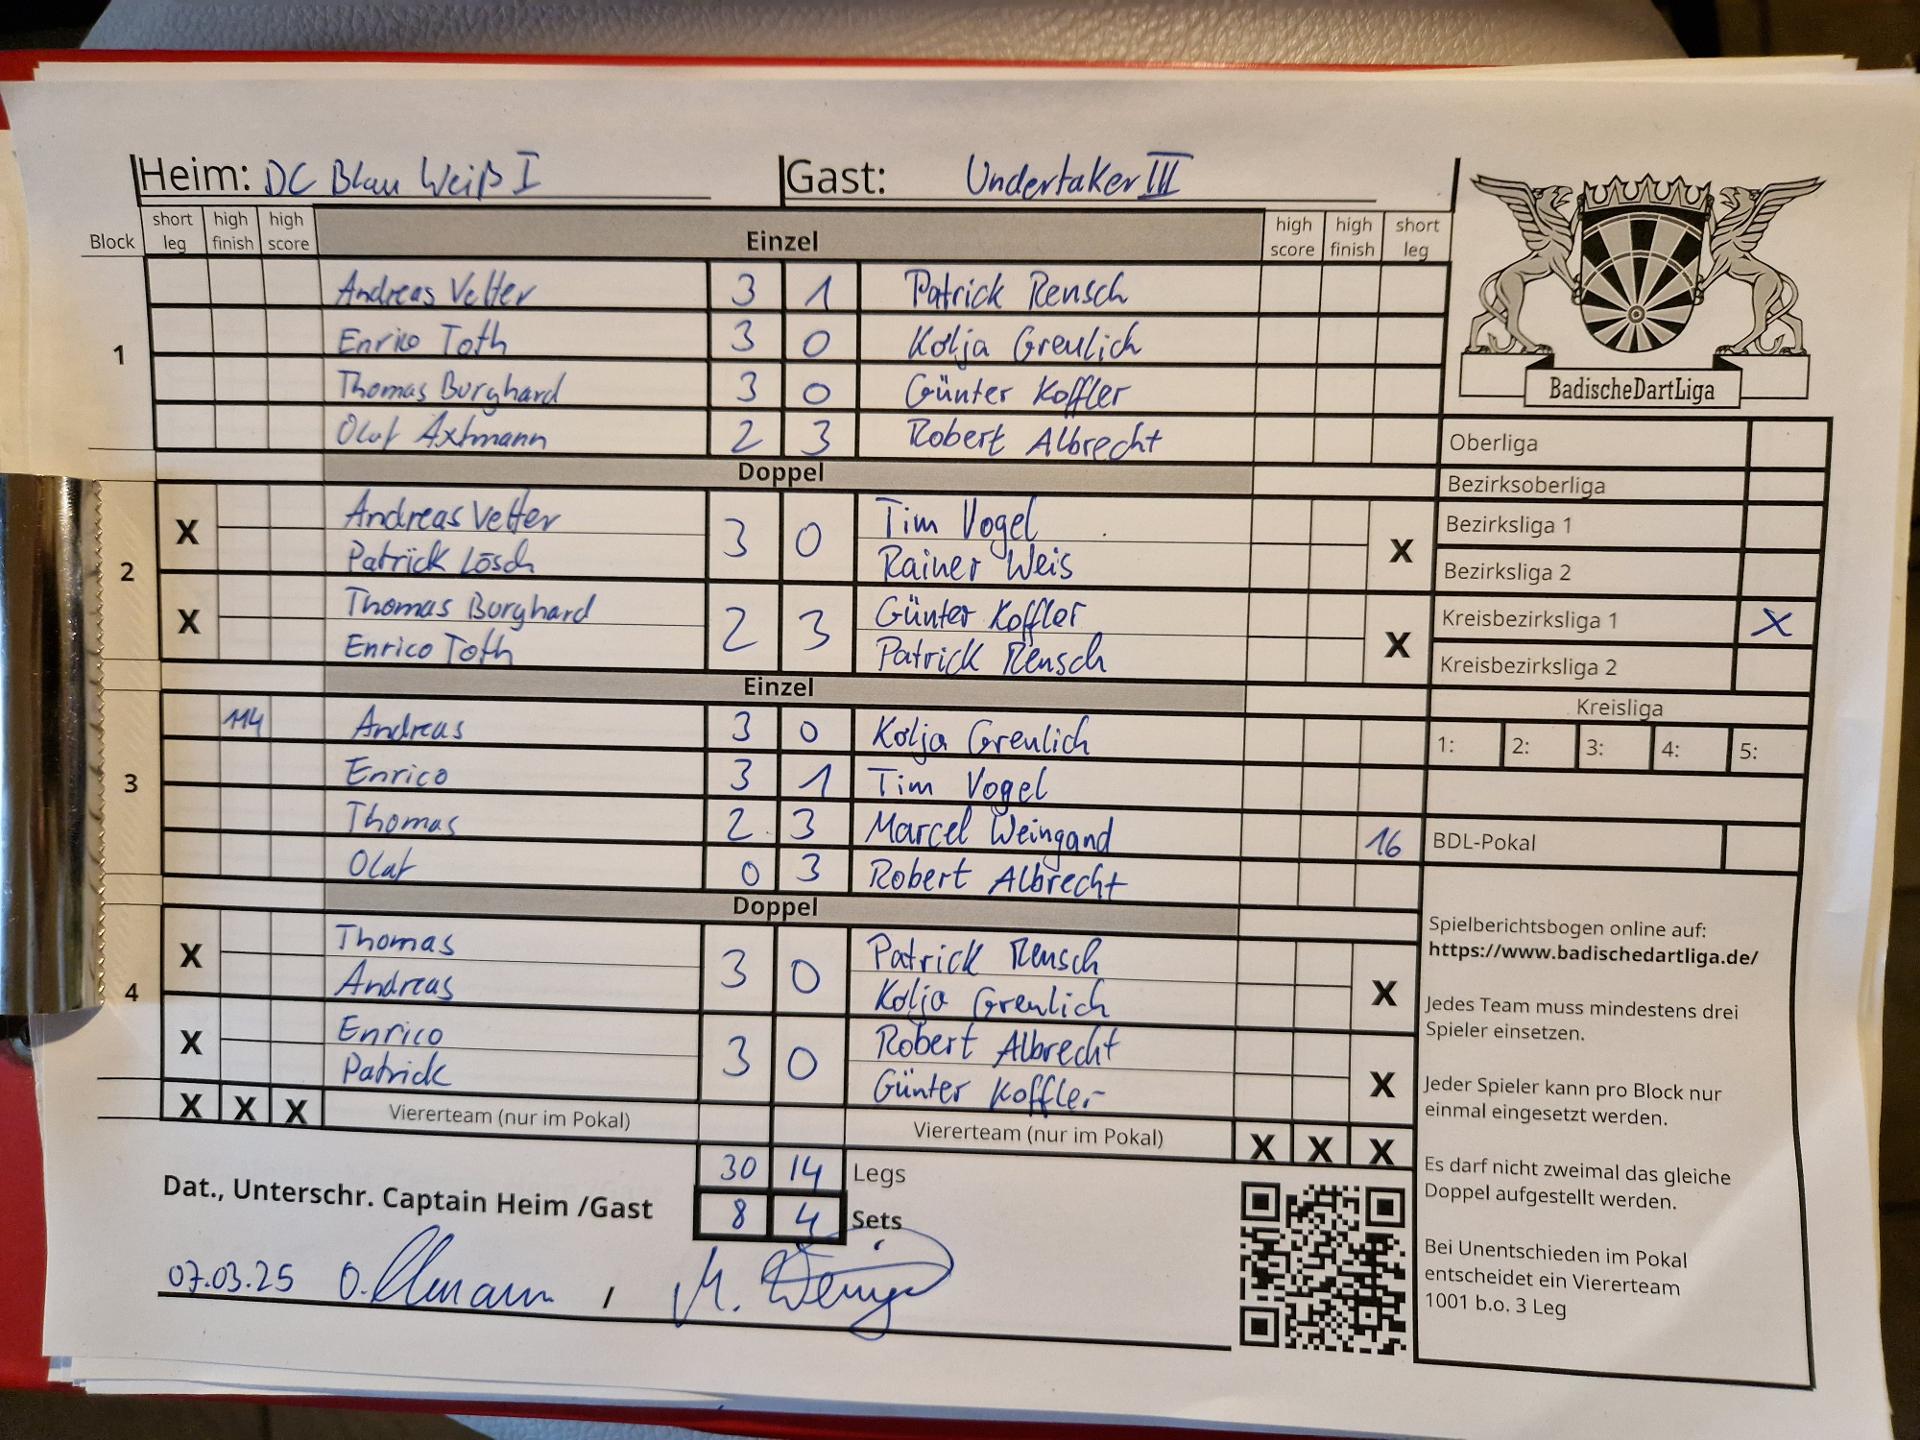 Heim: DC Blau Weiß I Gast: Undertaker III
Block short leg high finish high score Einzel high score high finish short leg
1
Andreas Vetter 3 1 Patrick Rensch
Enrico Toth 3 0 Kolja Greulich
Thomas Burghard 3 0 Günter Koffler
Olaf Axtmann 2 3 Robert Albrecht
Doppel
2
X Andreas Vetter 3 0 Tim Vogel X
Patrick Lösch Rainer Weis
X Thomas Burghard 2 3 Günter Koffler X
Enrico Toth Patrick Rensch
Einzel
3
114 Andreas 3 0 Kolja Greulich
Enrico 3 1 Tim Vogel
Thomas 2 3 Marcel Weingand 16
Olaf 0 3 Robert Albrecht
Doppel
4
X Thomas 3 0 Patrick Rensch X
Andreas Kolja Greulich
X Enrico 3 0 Robert Albrecht X
Patrick Günter Koffler
X X X Viererteam (nur im Pokal) Viererteam (nur im Pokal) X X X
30 14 Legs
Dat., Unterschr. Captain Heim /Gast 8 4 Sets
07.03.25 O. / M.
BadischeDartLiga
Oberliga
Bezirksoberliga
Bezirksliga 1
Bezirksliga 2
Kreisbezirksliga 1 X
Kreisbezirksliga 2
Kreisliga
1: 2: 3: 4: 5:
BDL-Pokal
Spielberichtsbogen online auf:
https://www.badischedartliga.de/
Jedes Team muss mindestens drei
Spieler einsetzen.
Jeder Spieler kann pro Block nur
einmal eingesetzt werden.
Es darf nicht zweimal das gleiche
Doppel aufgestellt werden.
Bei Unentschieden im Pokal
entscheidet ein Viererteam
1001 b.o. 3 Leg